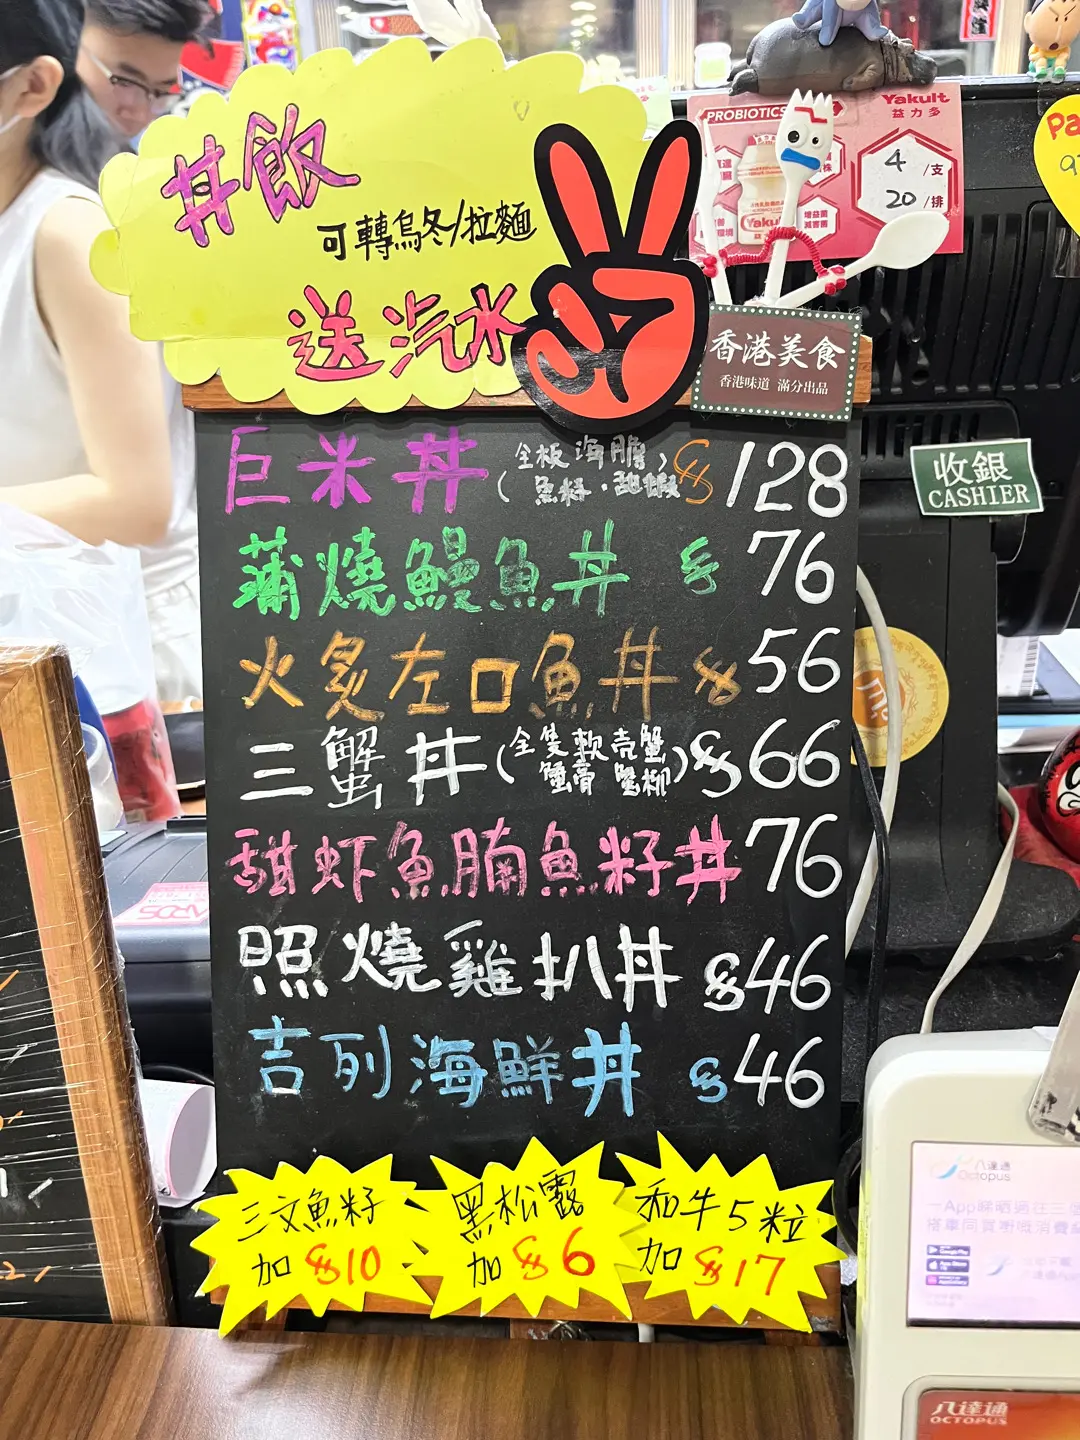 丼飯
可轉烏冬/拉麵
送汽水
PROBIOTICS
Yakult
益力多
4/支
20/排
香港美食
香港味道 滿分出品
收銀
CASHIER
巨米丼(全板海膽,魚籽·甜蝦) $128
蒲燒鰻魚丼 $76
火炙左口魚丼 $56
三蟹丼(全隻軟壳蟹 蟹膏 蟹柳) $66
甜虾魚腩魚籽丼 76
照燒雞扒丼 $46
吉列海鮮丼 $46
三文魚籽
加 $10
黑松露
加 $6
和牛5粒
加 $17
八達通
Octopus
八達通
OCTOPUS